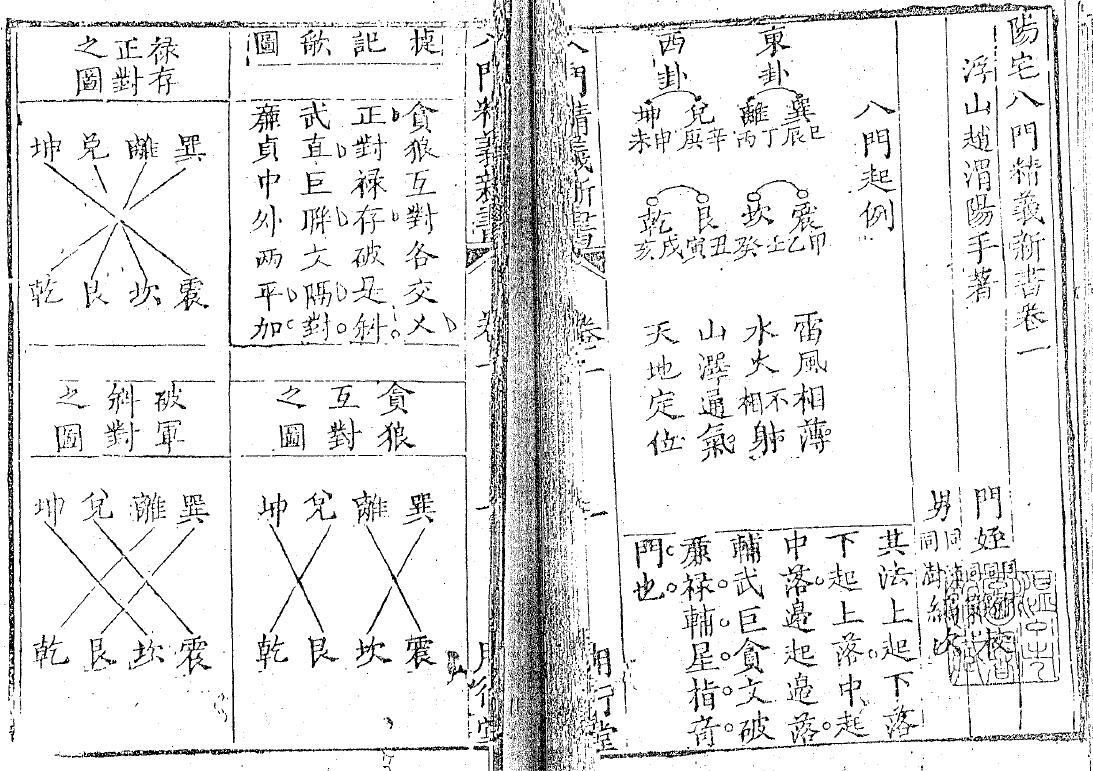 陽宅八門精義新書卷一
浮山趙渭陽手著
門姪
校
男
編次
八門起例
東卦
西卦
巽 離 兌 坤
巳辰 丁丙 辛庚 申未
震 坎 艮 乾
甲乙 壬癸 丑寅 戌亥
雷風相薄
水火不相射
山澤通氣
天地定位
其法上起下落
下起上落。中起
中落。邊起邊落。
輔武巨貪文破
廉。祿。輔星。指音
門也。
八門精義新書
卷一
月行堂
捷記歌圖
貪狼互對各交乂
正對祿存破是斜
武直巨聯文隅對
廉貞中外兩平加
祿存正對之圖
巽 離 兌 坤
震 坎 艮 乾
貪狼互對之圖
巽 離 兌 坤
震 坎 艮 乾
破軍斜對之圖
巽 離 兌 坤
震 坎 艮 乾